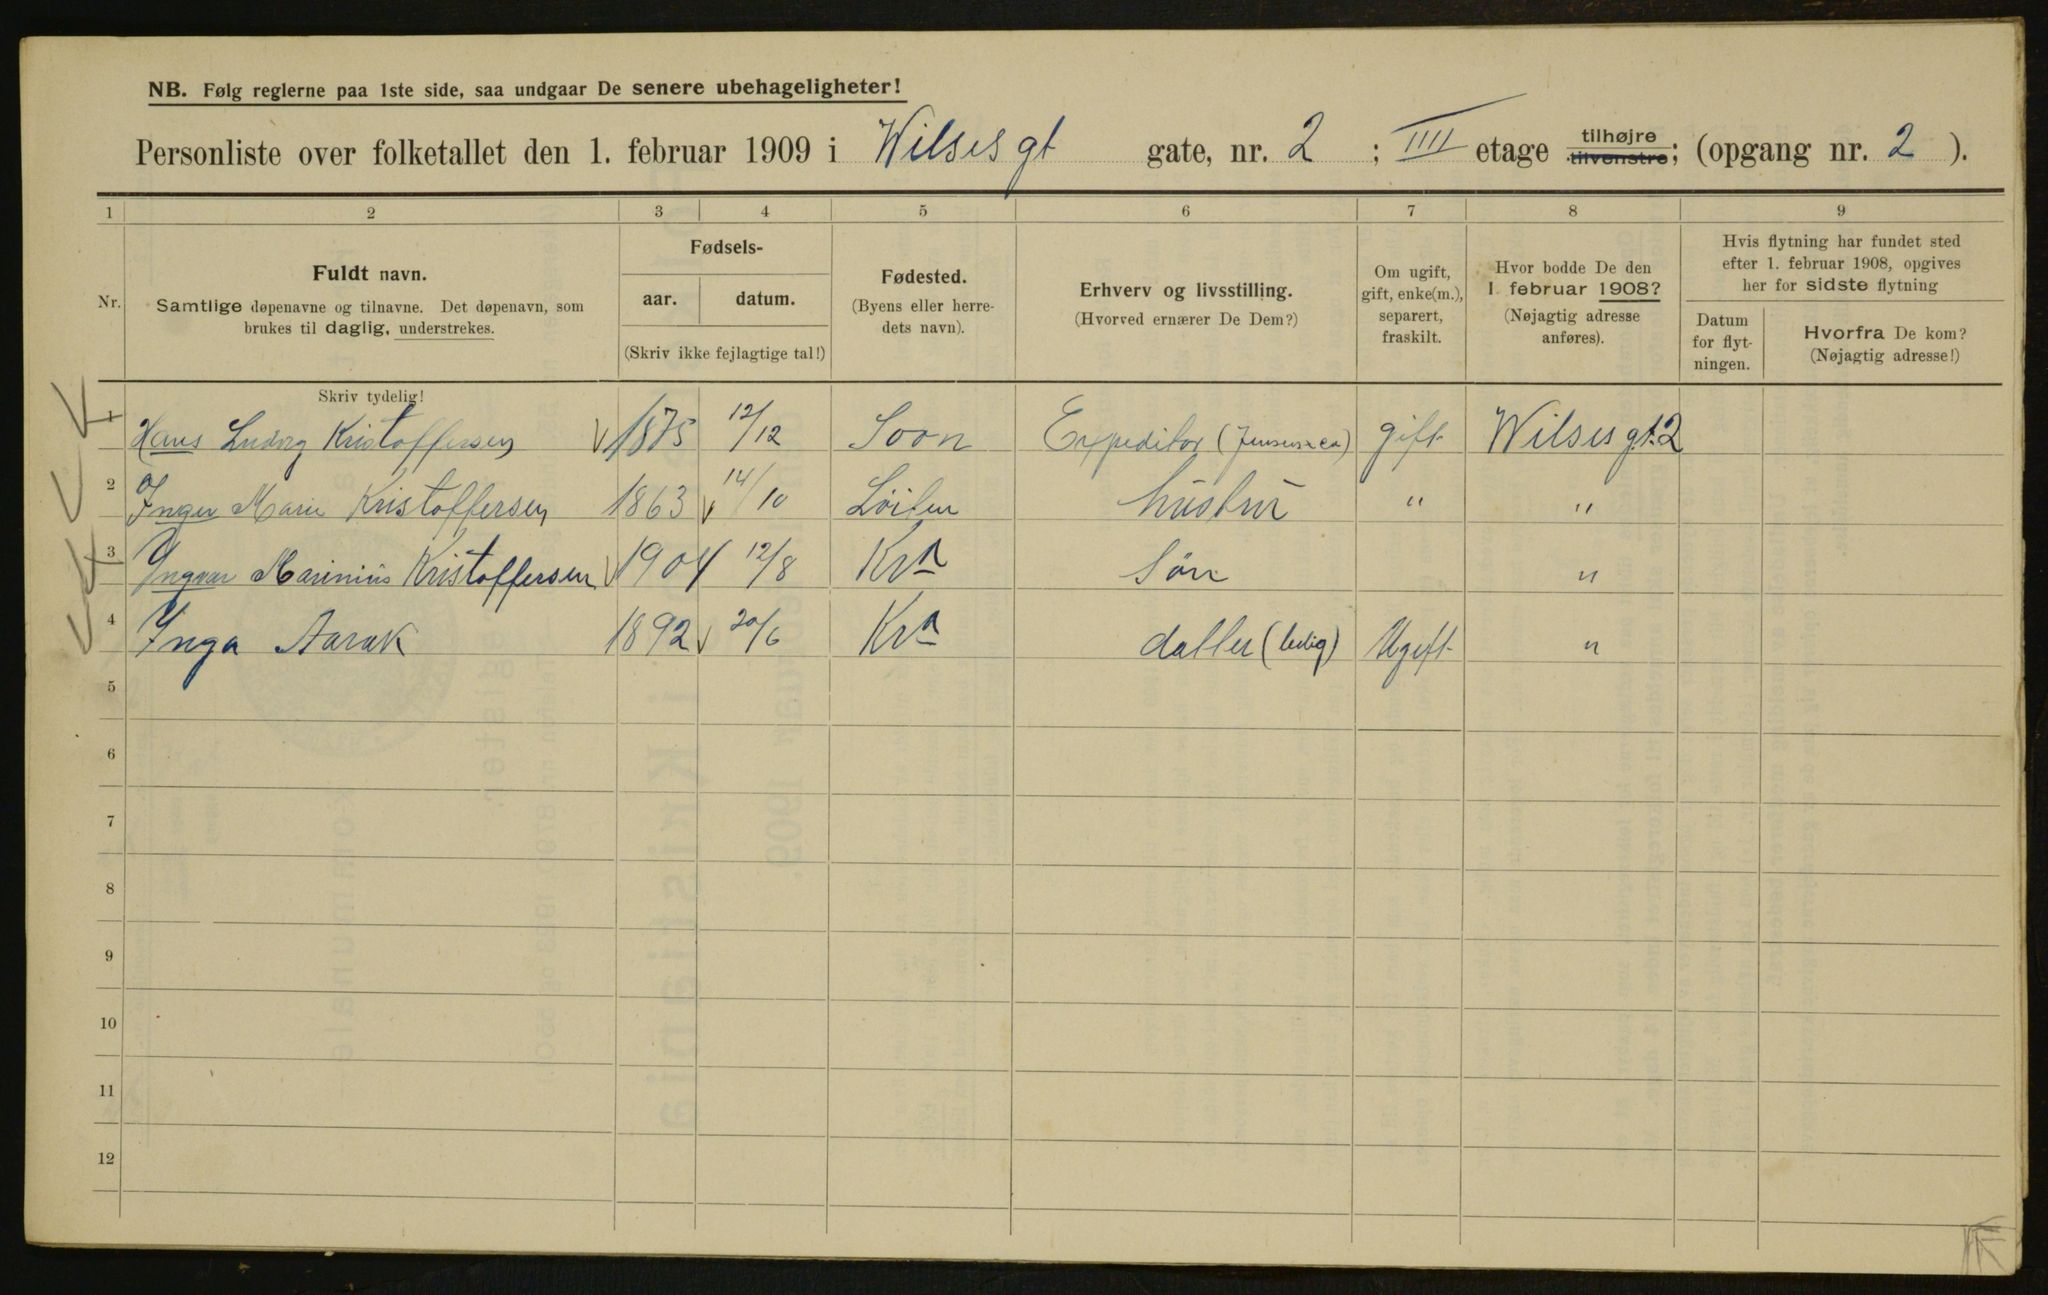 NB. Følg reglerne paa 1ste side, saa undgaar De senere ubehageligheter!
Personliste over folketallet den 1. februar 1909 i Wilses gt gate, nr. 2 ; IIII etage tilhøjre tilvenstre; (opgang nr. 2 ).
1 2 3 4 5 6 7 8 9
Nr.
Fuldt navn.
Samtlige døpenavne og tilnavne. Det døpenavn, som
brukes til daglig, understrekes.
Fødsels-
aar. datum.
(Skriv ikke fejlagtige tal!)
Fødested.
(Byens eller herre-
dets navn).
Erhverv og livsstilling.
(Hvorved ernærer De Dem?)
Om ugift,
gift, enke(m.),
separert,
fraskilt.
Hvor bodde De den
1 februar 1908?
(Nøjagtig adresse
anføres).
Hvis flytning har fundet sted
efter 1. februar 1908, opgives
her for sidste flytning
Datum
for flyt-
ningen.
Hvorfra De kom?
(Nøjagtig adresse!)
Skriv tydelig!
1 Hans Ludvig Kristoffersen 1875 12/12 Soon Expeditor gift Wilses gt. 2
2 Inger Marie Kristoffersen 1863 14/10 Löiten hustru " "
3 Yngvar Marinius Kristoffersen 1904 12/8 Kra Sön "
4 Ynga Aarak 1892 20/6 Kra datter (ledig) Ugift "
5
6
7
8
9
10
11
12